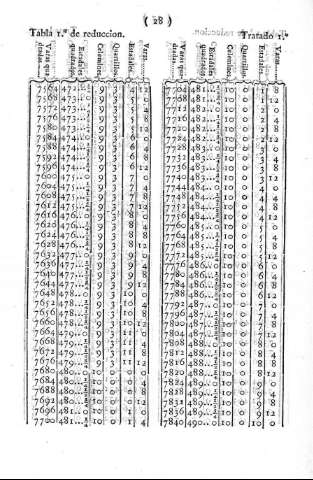 ( 28 )
Tabla 1.ª de reduccion.
Tratado 1.º
Varas quadradas. Estadales quadrados. Celemines. Quartillos. Estadales. Varas.
7564 472...¾ 9 3 4 12
7568 473...0 9 3 5 0
7572 473...¼ 9 3 5 4
7576 473...½ 9 3 5 8
7580 473...¾ 9 3 5 12
7584 474...0 9 3 6 0
7588 474...¼ 9 3 6 4
7592 474...½ 9 3 6 8
7596 474...¾ 9 3 6 12
7600 475...0 9 3 7 0
7604 475...¼ 9 3 7 4
7608 475...½ 9 3 7 8
7612 475...¾ 9 3 7 12
7616 476...0 9 3 8 0
7620 476...¼ 9 3 8 4
7624 476...½ 9 3 8 8
7628 476...¾ 9 3 8 12
7632 477...0 9 3 9 0
7636 477...¼ 9 3 9 4
7640 477...½ 9 3 9 8
7644 477...¾ 9 3 9 12
7648 478...0 9 3 10 0
7652 478...¼ 9 3 10 4
7656 478...½ 9 3 10 8
7660 478...¾ 9 3 10 12
7664 479...0 9 3 11 0
7668 479...¼ 9 3 11 4
7672 479...½ 9 3 11 8
7676 479...¾ 9 3 11 12
7680 480...0 10 0 0 0
7684 480...¼ 10 0 0 4
7688 480...½ 10 0 0 8
7692 480...¾ 10 0 0 12
7696 481...0 10 0 1 0
7700 481...¼ 10 0 1 4
Varas quadradas. Estadales quadrados. Celemines. Quartillos. Estadales. Varas.
7704 481...½ 10 0 1 8
7708 481...¾ 10 0 1 12
7712 482...0 10 0 2 0
7716 482...¼ 10 0 2 4
7720 482...½ 10 0 2 8
7724 482...¾ 10 0 2 12
7728 483...0 10 0 3 0
7732 483...¼ 10 0 3 4
7736 483...½ 10 0 3 8
7740 483...¾ 10 0 3 12
7744 484...0 10 0 4 0
7748 484...¼ 10 0 4 4
7752 484...½ 10 0 4 8
7756 484...¾ 10 0 4 12
7760 485...0 10 0 5 0
7764 485...¼ 10 0 5 4
7768 485...½ 10 0 5 8
7772 485...¾ 10 0 5 12
7776 486...0 10 0 6 0
7780 486...¼ 10 0 6 4
7784 486...½ 10 0 6 8
7788 486...¾ 10 0 6 12
7792 487...0 10 0 7 0
7796 487...¼ 10 0 7 4
7800 487...½ 10 0 7 8
7804 487...¾ 10 0 7 12
7808 488...0 10 0 8 0
7812 488...¼ 10 0 8 4
7816 488...½ 10 0 8 8
7820 488...¾ 10 0 8 12
7824 489...0 10 0 9 0
7828 489...¼ 10 0 9 4
7832 489...½ 10 0 9 8
7836 489...¾ 10 0 9 12
7840 490...0 10 0 10 0